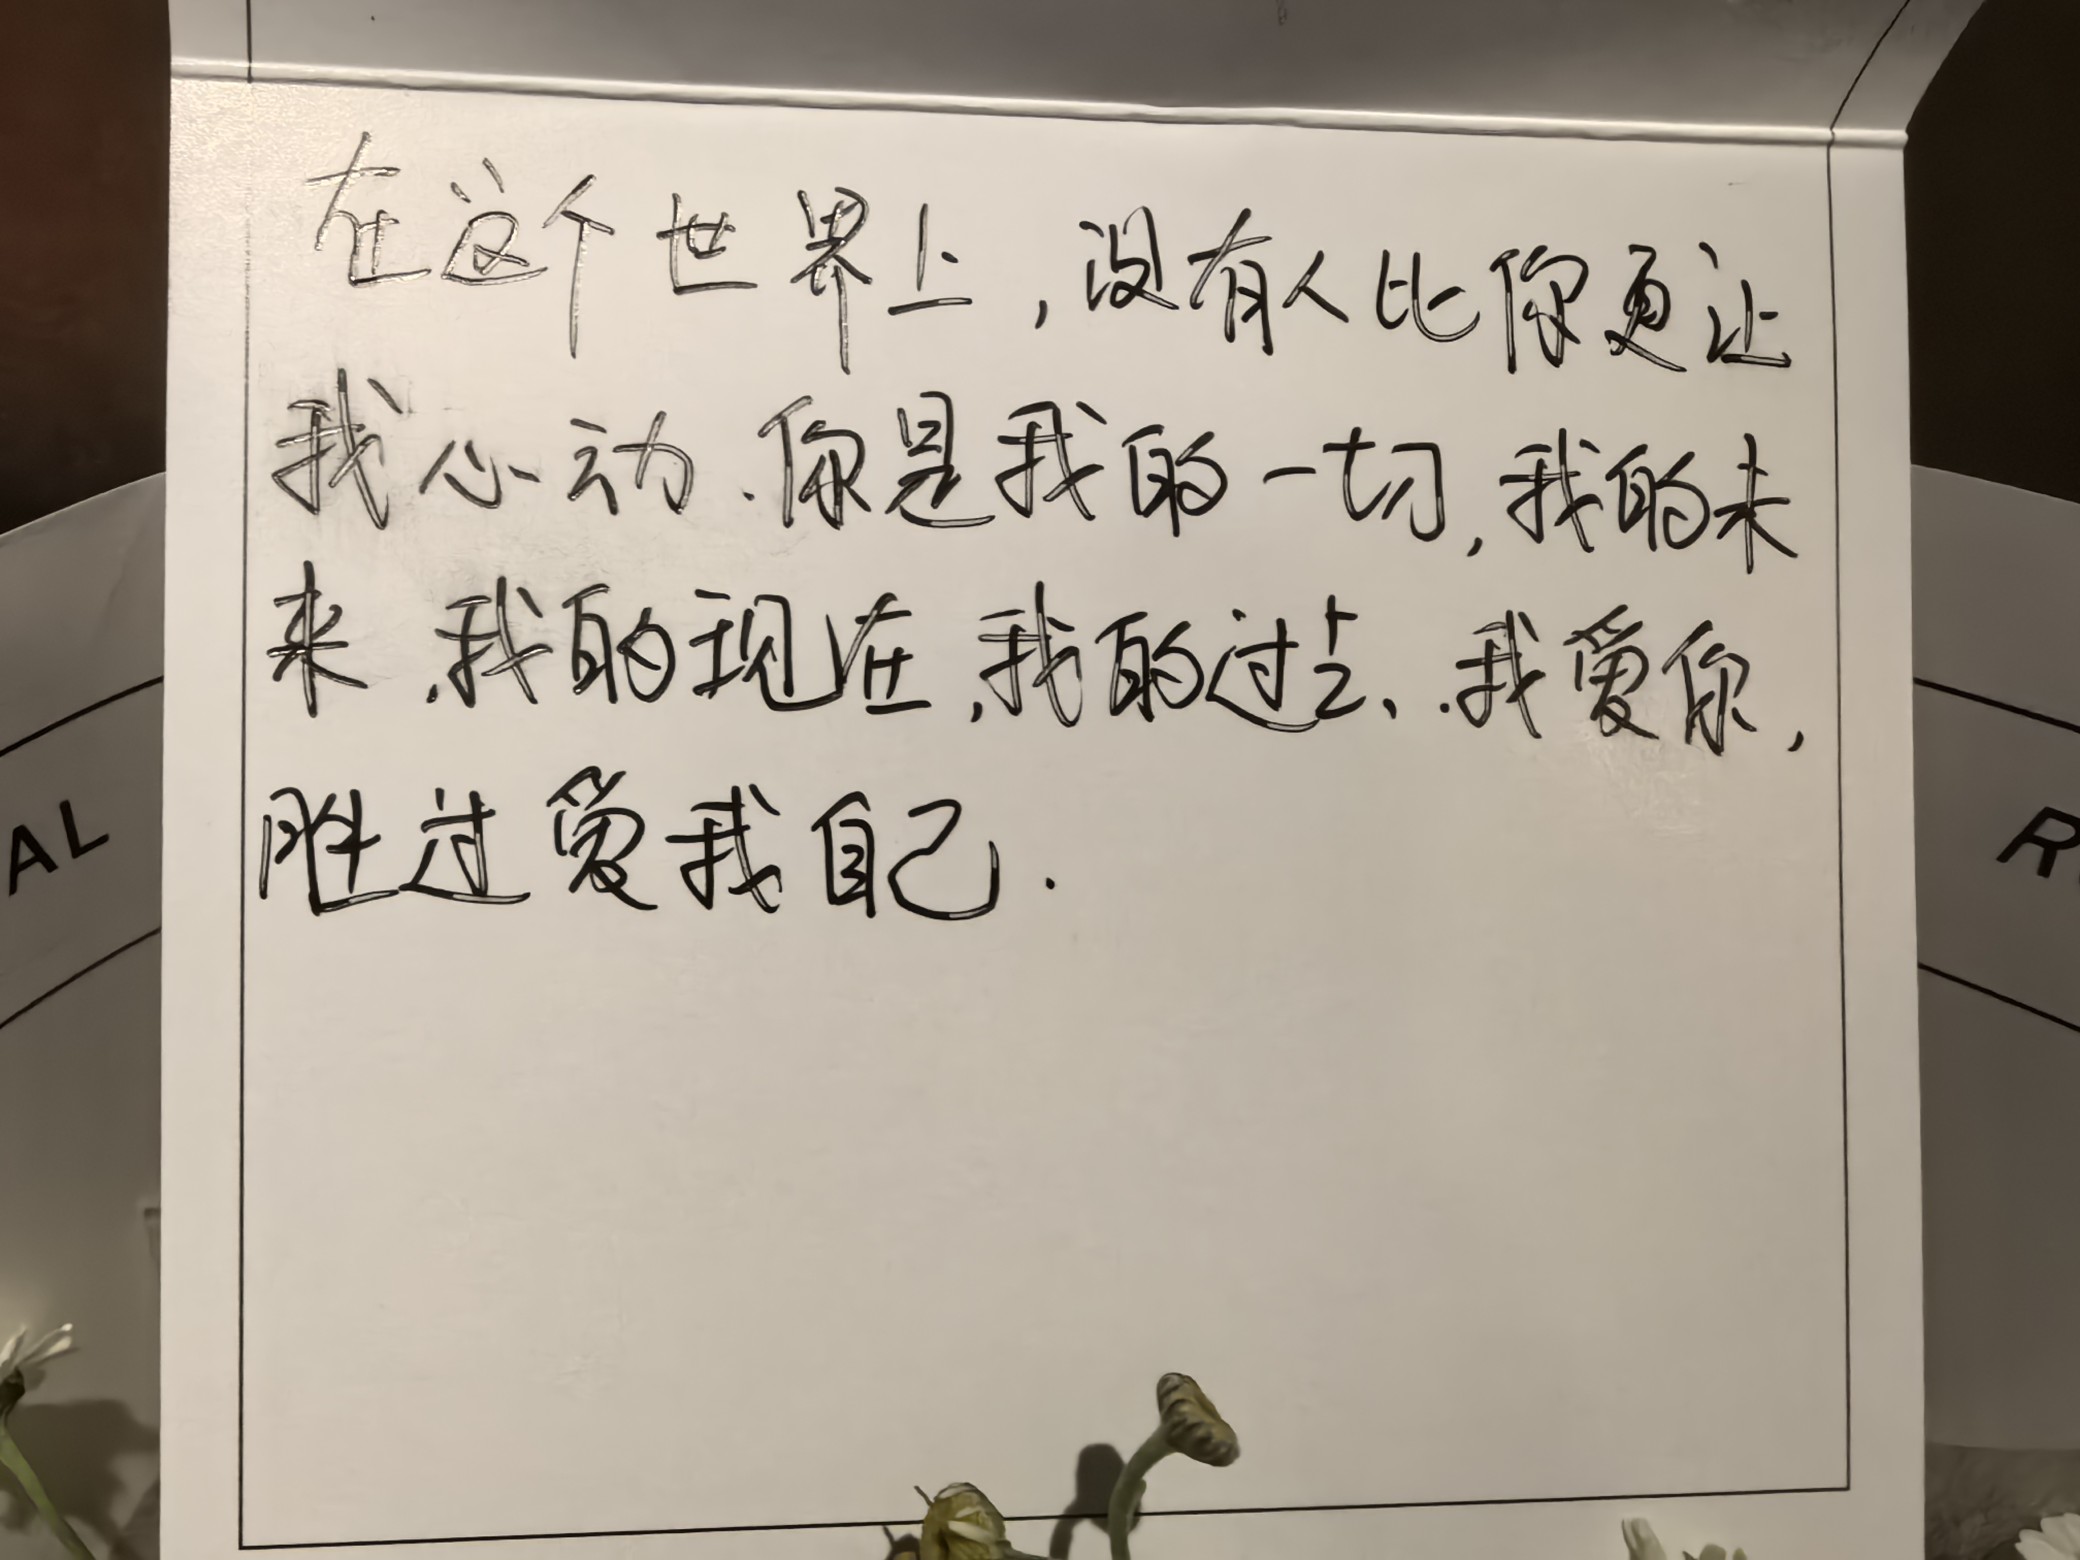 在这个世界上,没有人比你更让
我心动.你是我的一切,我的未
来.我的现在,我的过去..我爱你,
胜过爱我自己.
AL